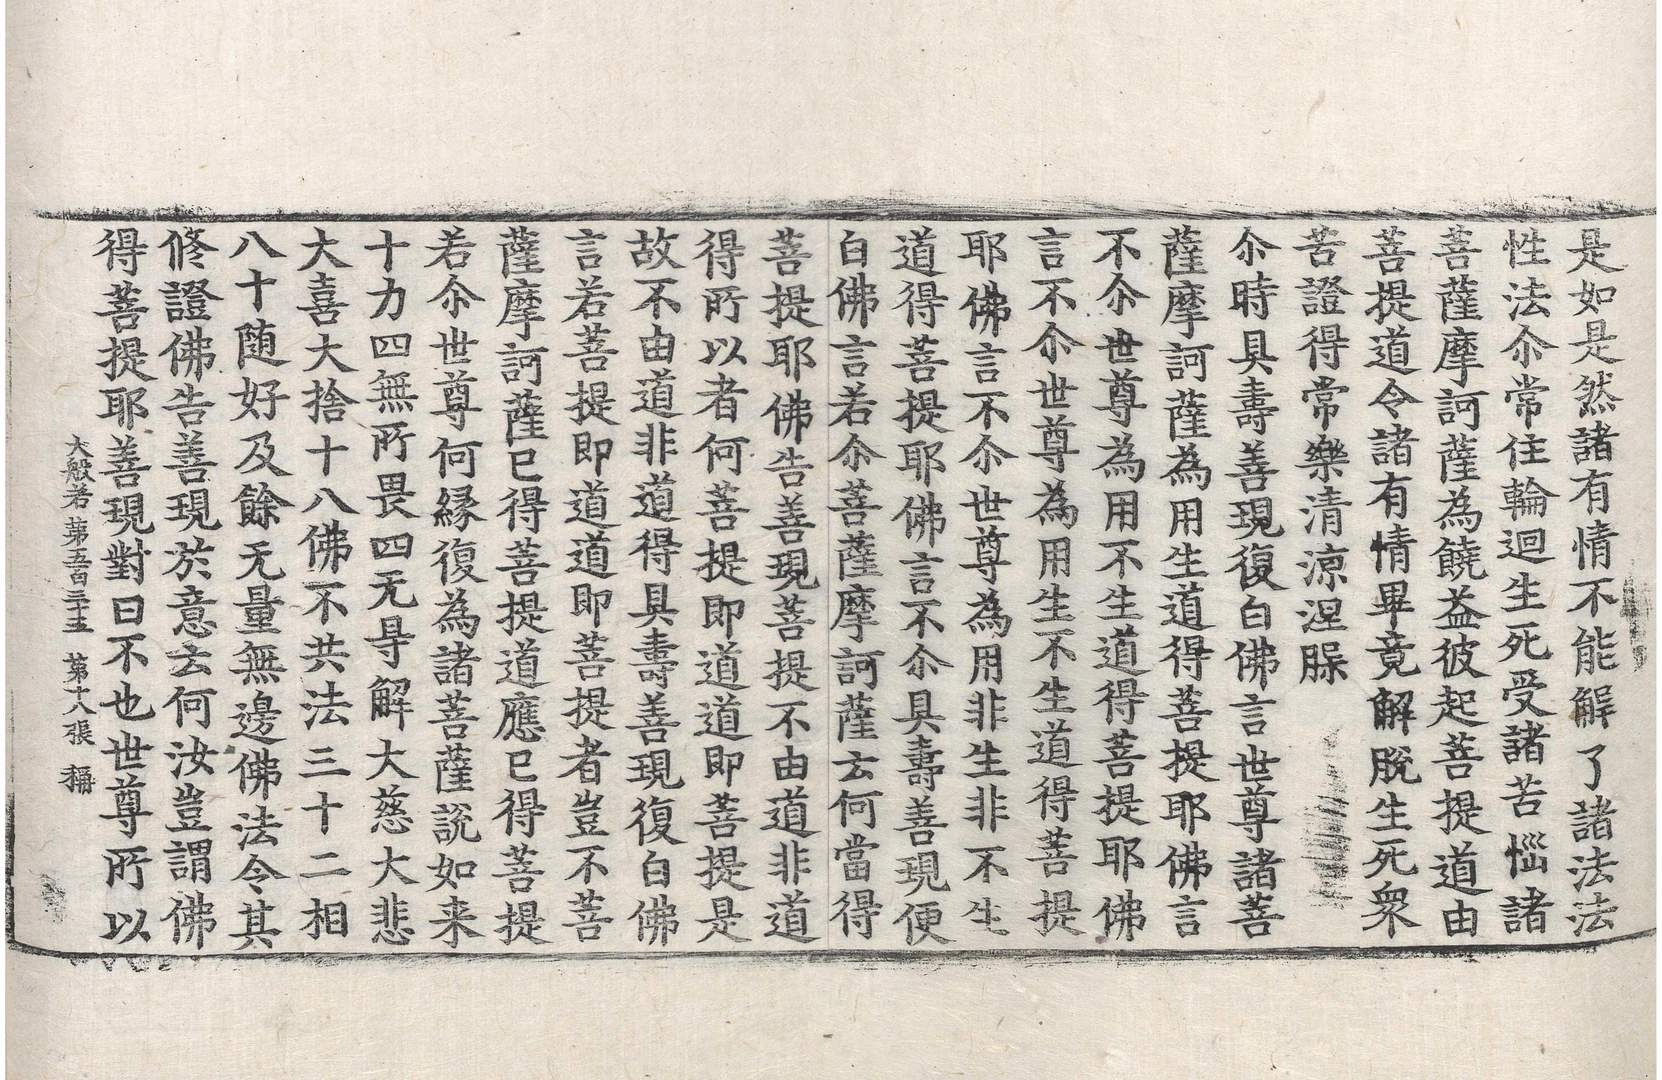 是如是然諸有情不能解了諸法法
性法尒常住輪迴生死受諸苦惱諸
菩薩摩訶薩為饒益彼起菩提道由
菩提道令諸有情畢竟解脫生死衆
苦證得常樂清涼涅槃
尒時具壽善現復白佛言世尊諸菩
薩摩訶薩為用生道得菩提耶佛言
不尒世尊為用不生道得菩提耶佛
言不尒世尊為用生不生道得菩提
耶佛言不尒世尊為用非生非不生
道得菩提耶佛言不尒具壽善現便
白佛言若尒菩薩摩訶薩云何當得
菩提耶佛告善現菩提不由道非道
得所以者何菩提即道道即菩提是
故不由道非道得具壽善現復白佛
言若菩提即道道即菩提者豈不菩
薩摩訶薩已得菩提道應已得菩提
若尒世尊何緣復為諸菩薩說如来
十力四無所畏四无㝵解大慈大悲
大喜大捨十八佛不共法三十二相
八十随好及餘无量無邊佛法令其
修證佛告善現於意云何汝豈謂佛
得菩提耶善現對曰不也世尊所以
大般若第五百三十五 第十八張 稱